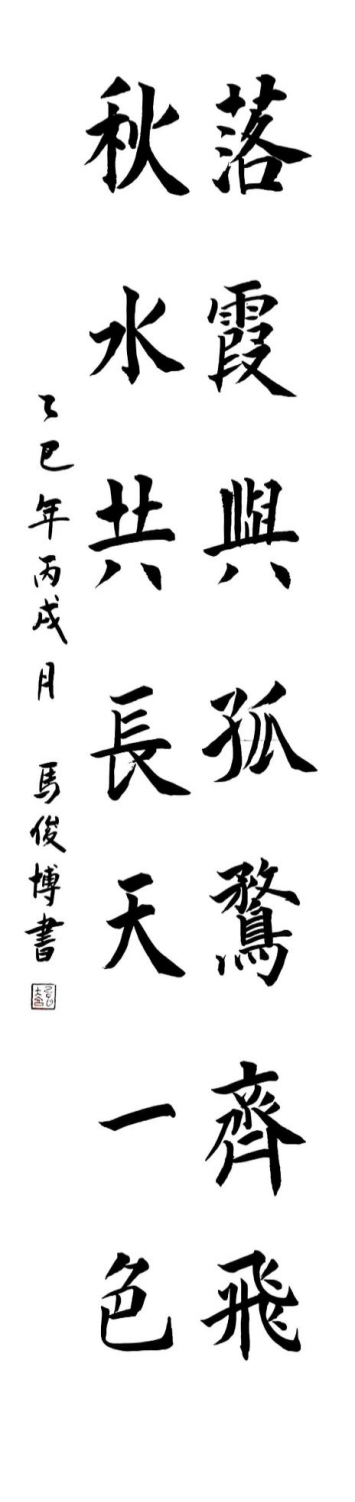 落霞與孤鶩齊飛
秋水共長天一色
乙巳年丙戌月 馬俊博書